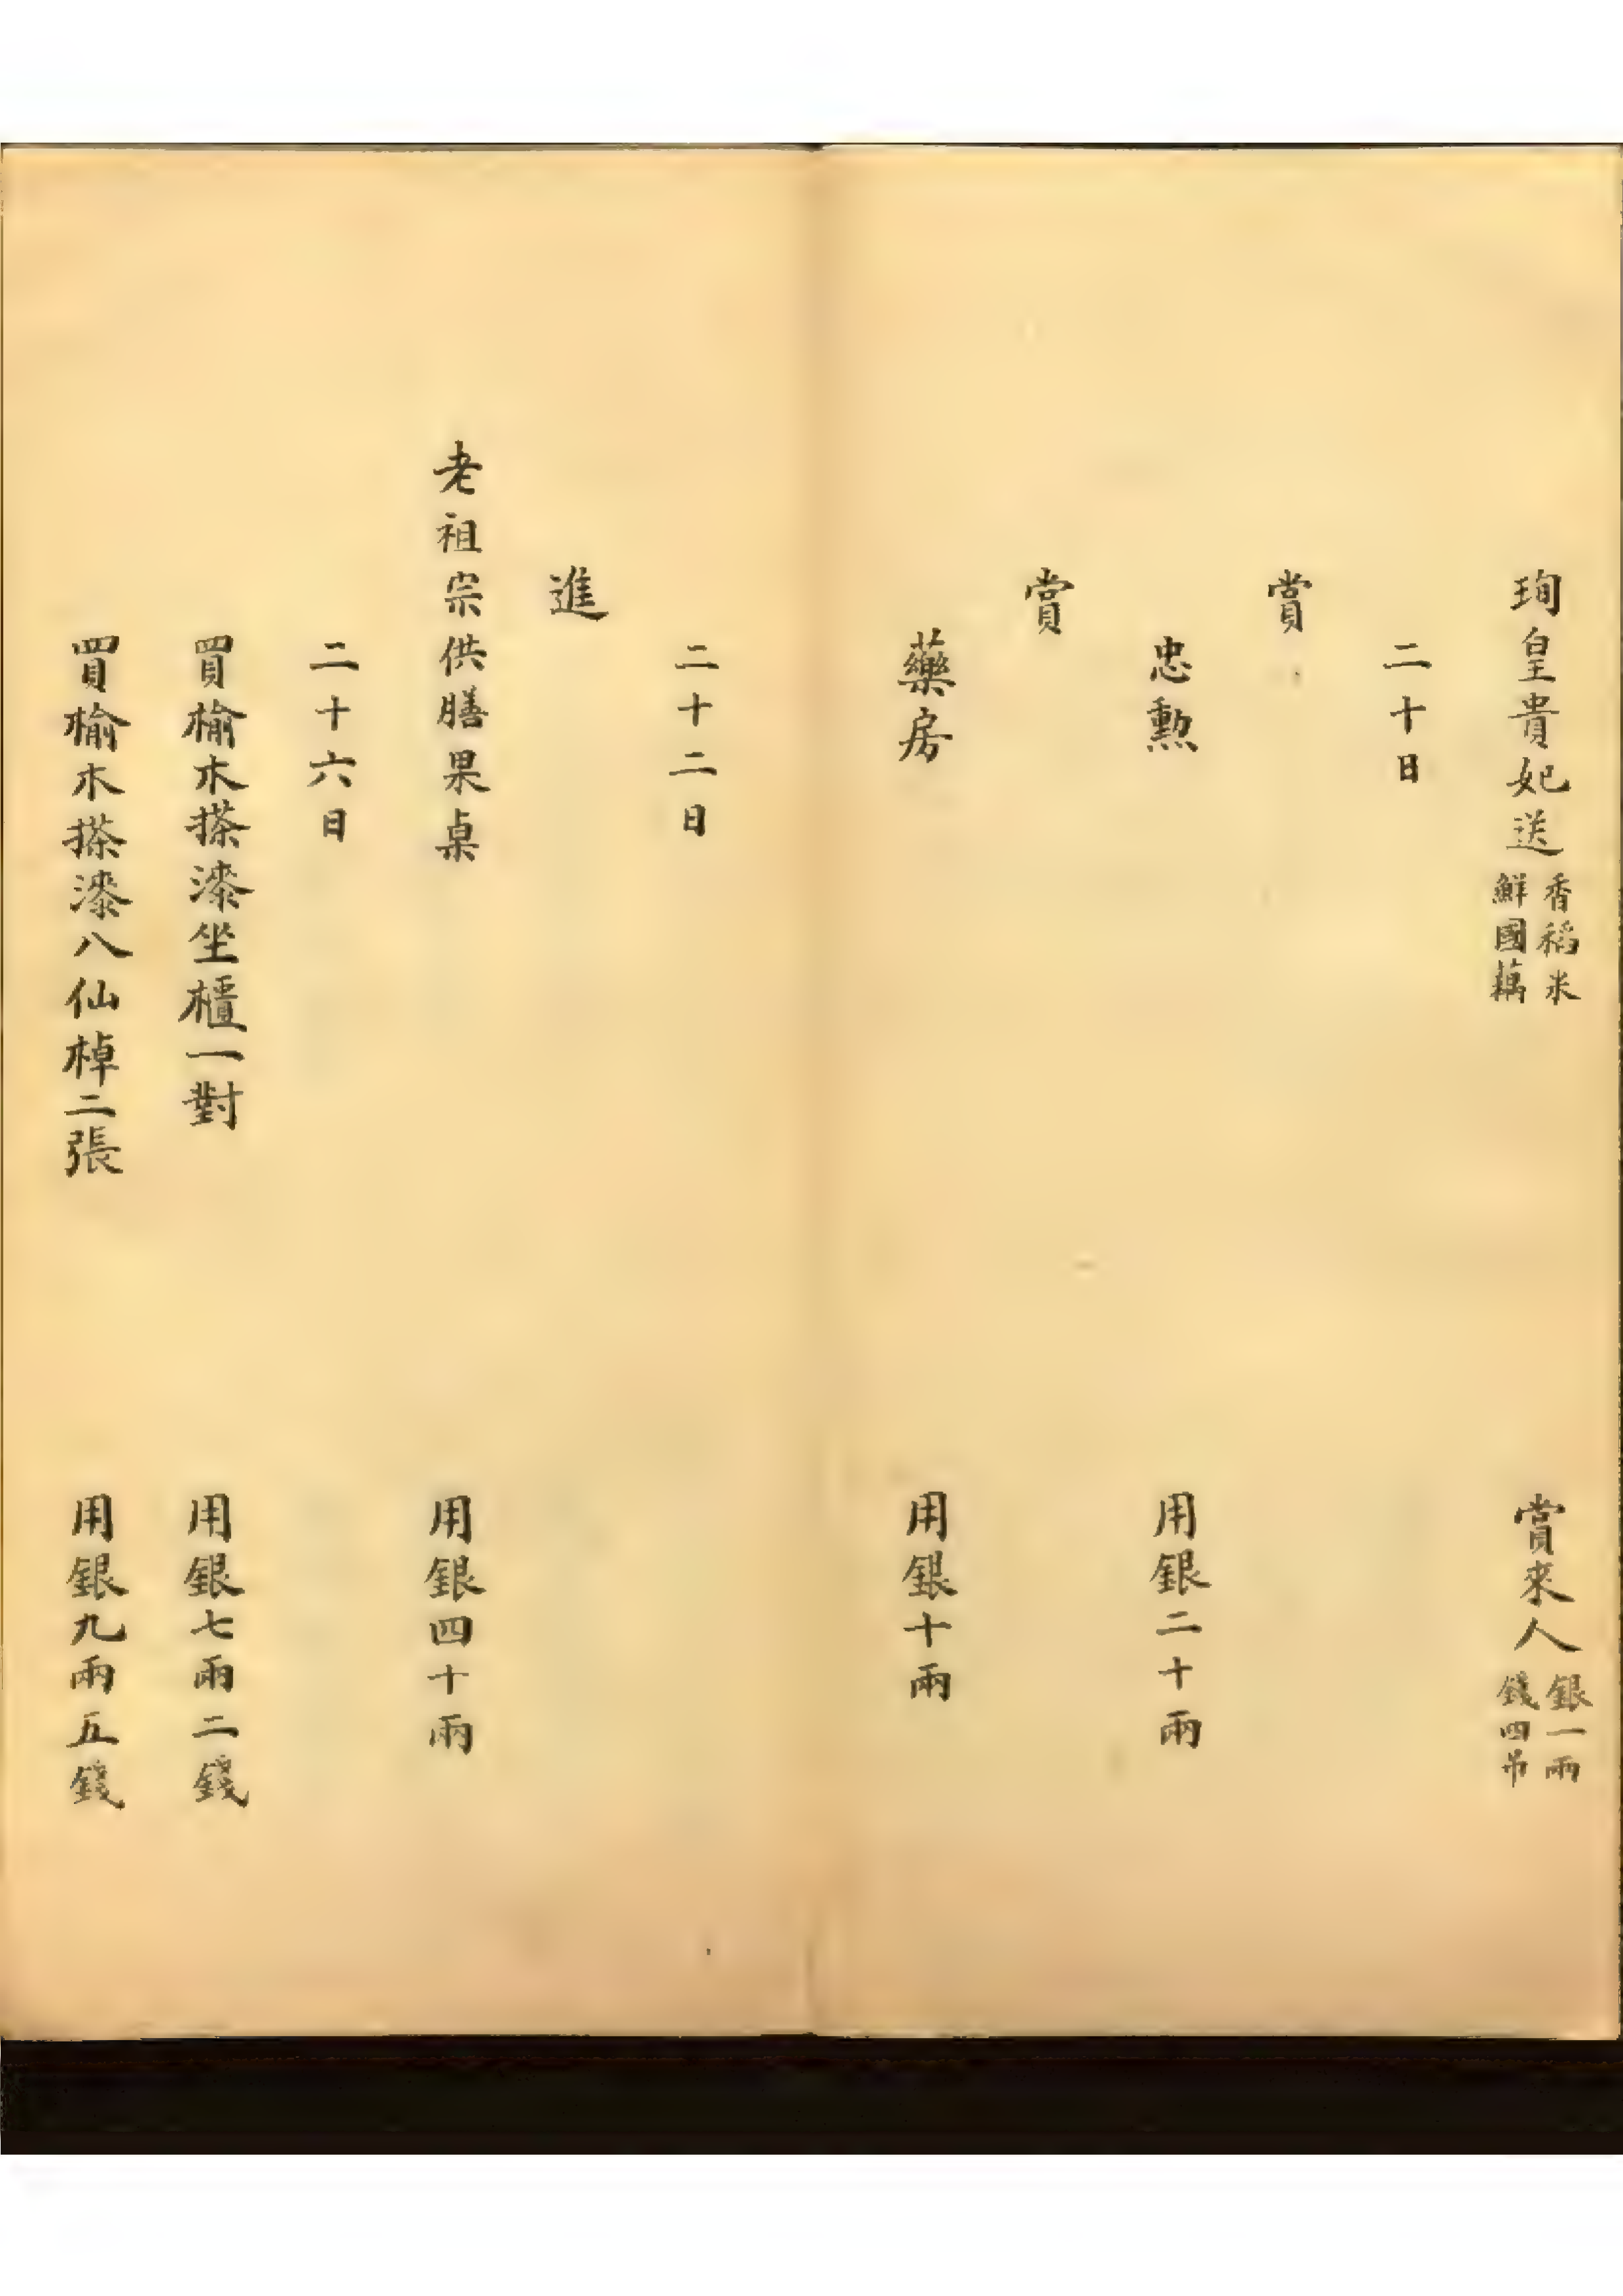 珣皇貴妃送香稻米鮮國藕 賞來人銀一兩錢四吊
二十日
賞
忠勲 用銀二十兩
賞
藥房 用銀十兩
二十二日
進
老祖宗供膳果桌 用銀四十兩
二十六日
買榆木搽漆坐櫃一對 用銀七兩二錢
買榆木搽漆八仙棹二張 用銀九兩五錢